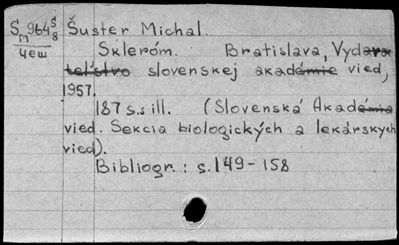 Šuster Michal.
Skleróm. Bratislava, Vydava
teľstvo slovenskej akadémie vied,
1957.
187 s.s ill. (Slovenská Akadémia
vied. Sekcia biologických a lekárskych
vied).
Bibliogr.: s. 149-158
чеш